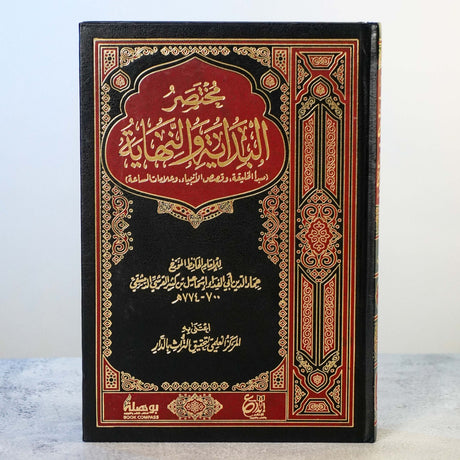 مُخْتَصَرُ
البِدَايَةِ وَالنِّهَايَةِ
(مبدأ الخليقة، وقصص الأنبياء، وعلامات الساعة)
للإمام الحافظ المؤرخ
عماد الدين أبي الفداء إسماعيل بن كثير القرشي الدمشقي
٧٠٠-٧٧٤هـ
اعتنى به
المركز العلمي لتحقيق التراث بالدار
بوصلة
BOOK COMPASS